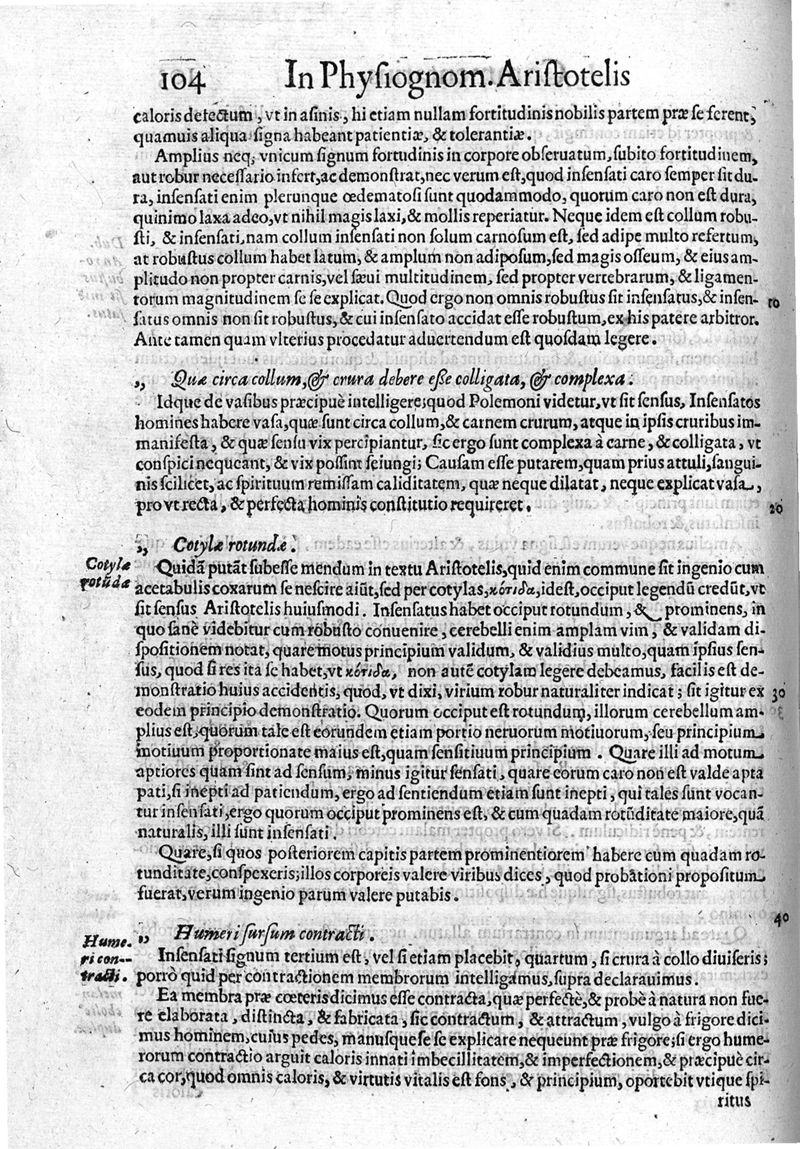 104 In Physiognom. Aristotelis
caloris defectum, vt in asinis, hi etiam nullam fortitudinis nobilis partem præ se ferent,
quamuis aliqua signa habeant patientiæ, & tolerantiæ.
Amplius neq; vnicum signum fortudinis in corpore obseruatum, subito fortitudinem,
aut robur necessario infert, ac demonstrat, nec verum est, quod insensati caro semper sit du-
ra, insensati enim plerunque œdematosi sunt quodammodo, quorum caro non est dura,
quinimo laxa adeo, vt nihil magis laxi, & mollis reperiatur. Neque idem est collum robu-
sti, & insensati, nam collum insensati non solum carnosum est, sed adipe multo refertum,
at robustus collum habet latum, & amplum non adiposum, sed magis osseum, & eius am-
plitudo non propter carnis, vel sæui multitudinem, sed propter vertebrarum, & ligamen-
torum magnitudinem se se explicat. Quod ergo non omnis robustus sit insensatus, & insen- 10
satus omnis non sit robustus, & cui insensato accidat esse robustum, ex his patere arbitror.
Ante tamen quam vlterius procedatur aduertendum est quosdam legere.
„ Quæ circa collum, & crura debere esse colligata, & complexa.
Idque de vasibus præcipuè intelligere; quod Polemoni videtur, vt sit sensus, Insensatos
homines habere vasa, quæ sunt circa collum, & carnem crurum, atque in ipsis cruribus im-
manifesta, & quæ sensu vix percipiantur, sic ergo sunt complexa à carne, & colligata, vt
conspici nequeant, & vix possint seiungi; Causam esse putarem, quam prius attuli, sangui-
nis scilicet, ac spirituum remissam caliditatem, quæ neque dilatat, neque explicat vasa,
pro vt recta, & perfecta hominis constitutio requireret. 20
„ Cotylæ rotundæ.
Cotylæ rotũdæ
Quidã putãt subesse mendum in textu Aristotelis, quid enim commune sit ingenio cum
acetabulis coxarum se nescire aiũt, sed per cotylas, κότιδα, idest, occiput legendũ credũt, vt
sit sensus Aristotelis huiusmodi. Insensatus habet occiput rotundum, & prominens, in
quo sanè videbitur cum robusto conuenire, cerebelli enim amplam vim, & validam di-
spositionem notat, quare motus principium validum, & validius multo, quam ipsius sen-
sus, quod si res ita se habet, vt κότιδα, non autẽ cotylam legere debeamus, facilis est de-
monstratio huius accidentis, quod, vt dixi, virium robur naturaliter indicat; sit igitur ex 30
eodem principio demonstratio. Quorum occiput est rotundum, illorum cerebellum am-
plius est, quorum tale est eorundem etiam portio neruorum motiuorum, seu principium
motiuum proportionate maius est, quam sensitiuum principium. Quare illi ad motum
aptiores quam sint ad sensum, minus igitur sensati, quare eorum caro non est valde apta
pati, si inepti ad patiendum, ergo ad sentiendum etiam sunt inepti, qui tales sunt vocan-
tur insensati, ergo quorum occiput prominens est, & cum quadam rotũditate maiore, quã
naturalis, illi sunt insensati.
Quare, si quos posteriorem capitis partem prominentiorem habere cum quadam ro-
tunditate, conspexeris; illos corporeis valere viribus dices, quod probationi propositum
fuerat, verum ingenio parum valere putabis.
40
„ Humeri sursum contracti.
Hume-
ri con-
tracti.
Insensati signum tertium est, vel si etiam placebit, quartum, si crura à collo diuiseris;
porrò quid per contractionem membrorum intelligamus, supra declarauimus.
Ea membra præ cœteris dicimus esse contracta, quæ perfectè, & probè à natura non fue-
re elaborata, distincta, & fabricata, sic contractum, & attractum, vulgo à frigore dici-
mus hominem, cuius pedes, manusque se se explicare nequeunt præ frigore; si ergo hume-
rorum contractio arguit caloris innati imbecillitatem, & imperfectionem, & præcipuè cir-
ca cor, quod omnis caloris, & virtutis vitalis est fons, & principium, oportebit vtique spi-
ritus